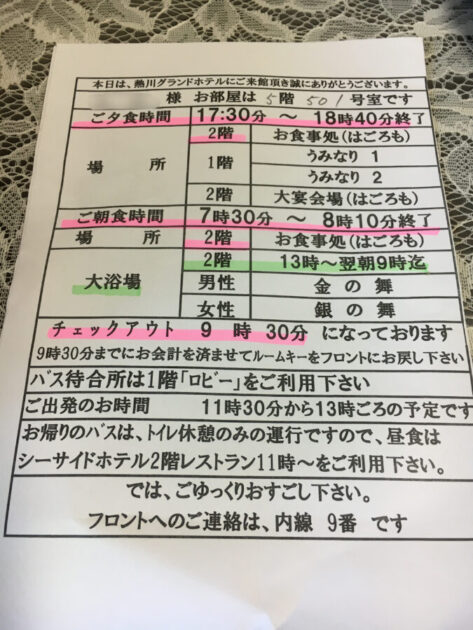 本日は、熱川グランドホテルにご来館頂き誠にありがとうございます。
様 お部屋は 5階 501号室です
ご夕食時間 17:30分 ～ 18時40分終了
場 所 2階 お食事処(はごろも)
1階 うみなり 1
うみなり 2
2階 大宴会場(はごろも)
ご朝食時間 7時30分 ～ 8時10分終了
場 所 2階 お食事処(はごろも)
大浴場 2階 13時～翌朝9時迄
男性 金の舞
女性 銀の舞
チェックアウト 9時30分 になっております
9時30分までにお会計を済ませてルームキーをフロントにお戻し下さい
バス待合所は1階「ロビー」をご利用下さい
ご出発のお時間 11時30分から13時ごろの予定です
お帰りのバスは、トイレ休憩のみの運行ですので、昼食は
シーサイドホテル2階レストラン11時～をご利用下さい。
では、ごゆっくりおすごし下さい。
フロントへのご連絡は、内線 9番 です